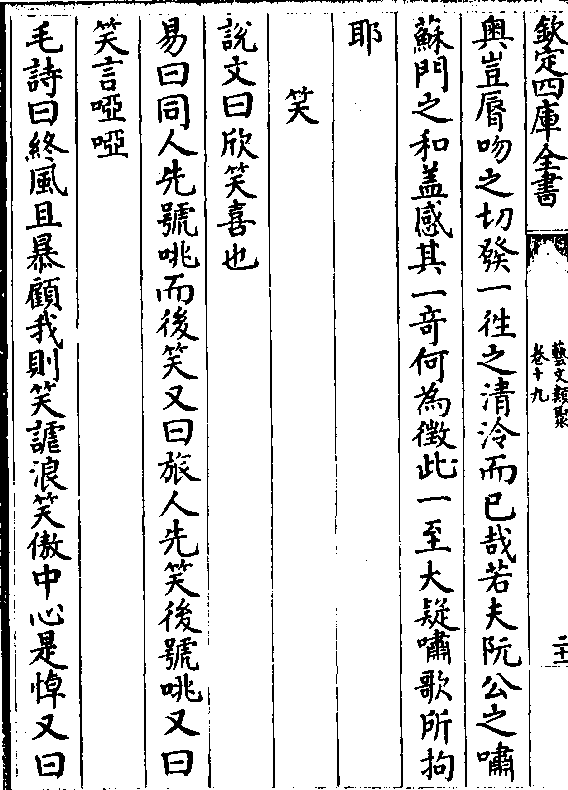 欽定四庫全書
藝文類聚
卷十九
二十一
奥豈脣吻之切發一徃之清泠而已哉若夫阮公之嘯
蘇門之和盖感其一奇何為徴此一至大疑嘯歌所拘
耶
笑
說文曰欣笑喜也
易曰同人先號咷而後笑又曰旅人先笑後號咷又曰
笑言啞啞
毛詩曰終風且暴顧我則笑謔浪笑傲中心是悼又曰